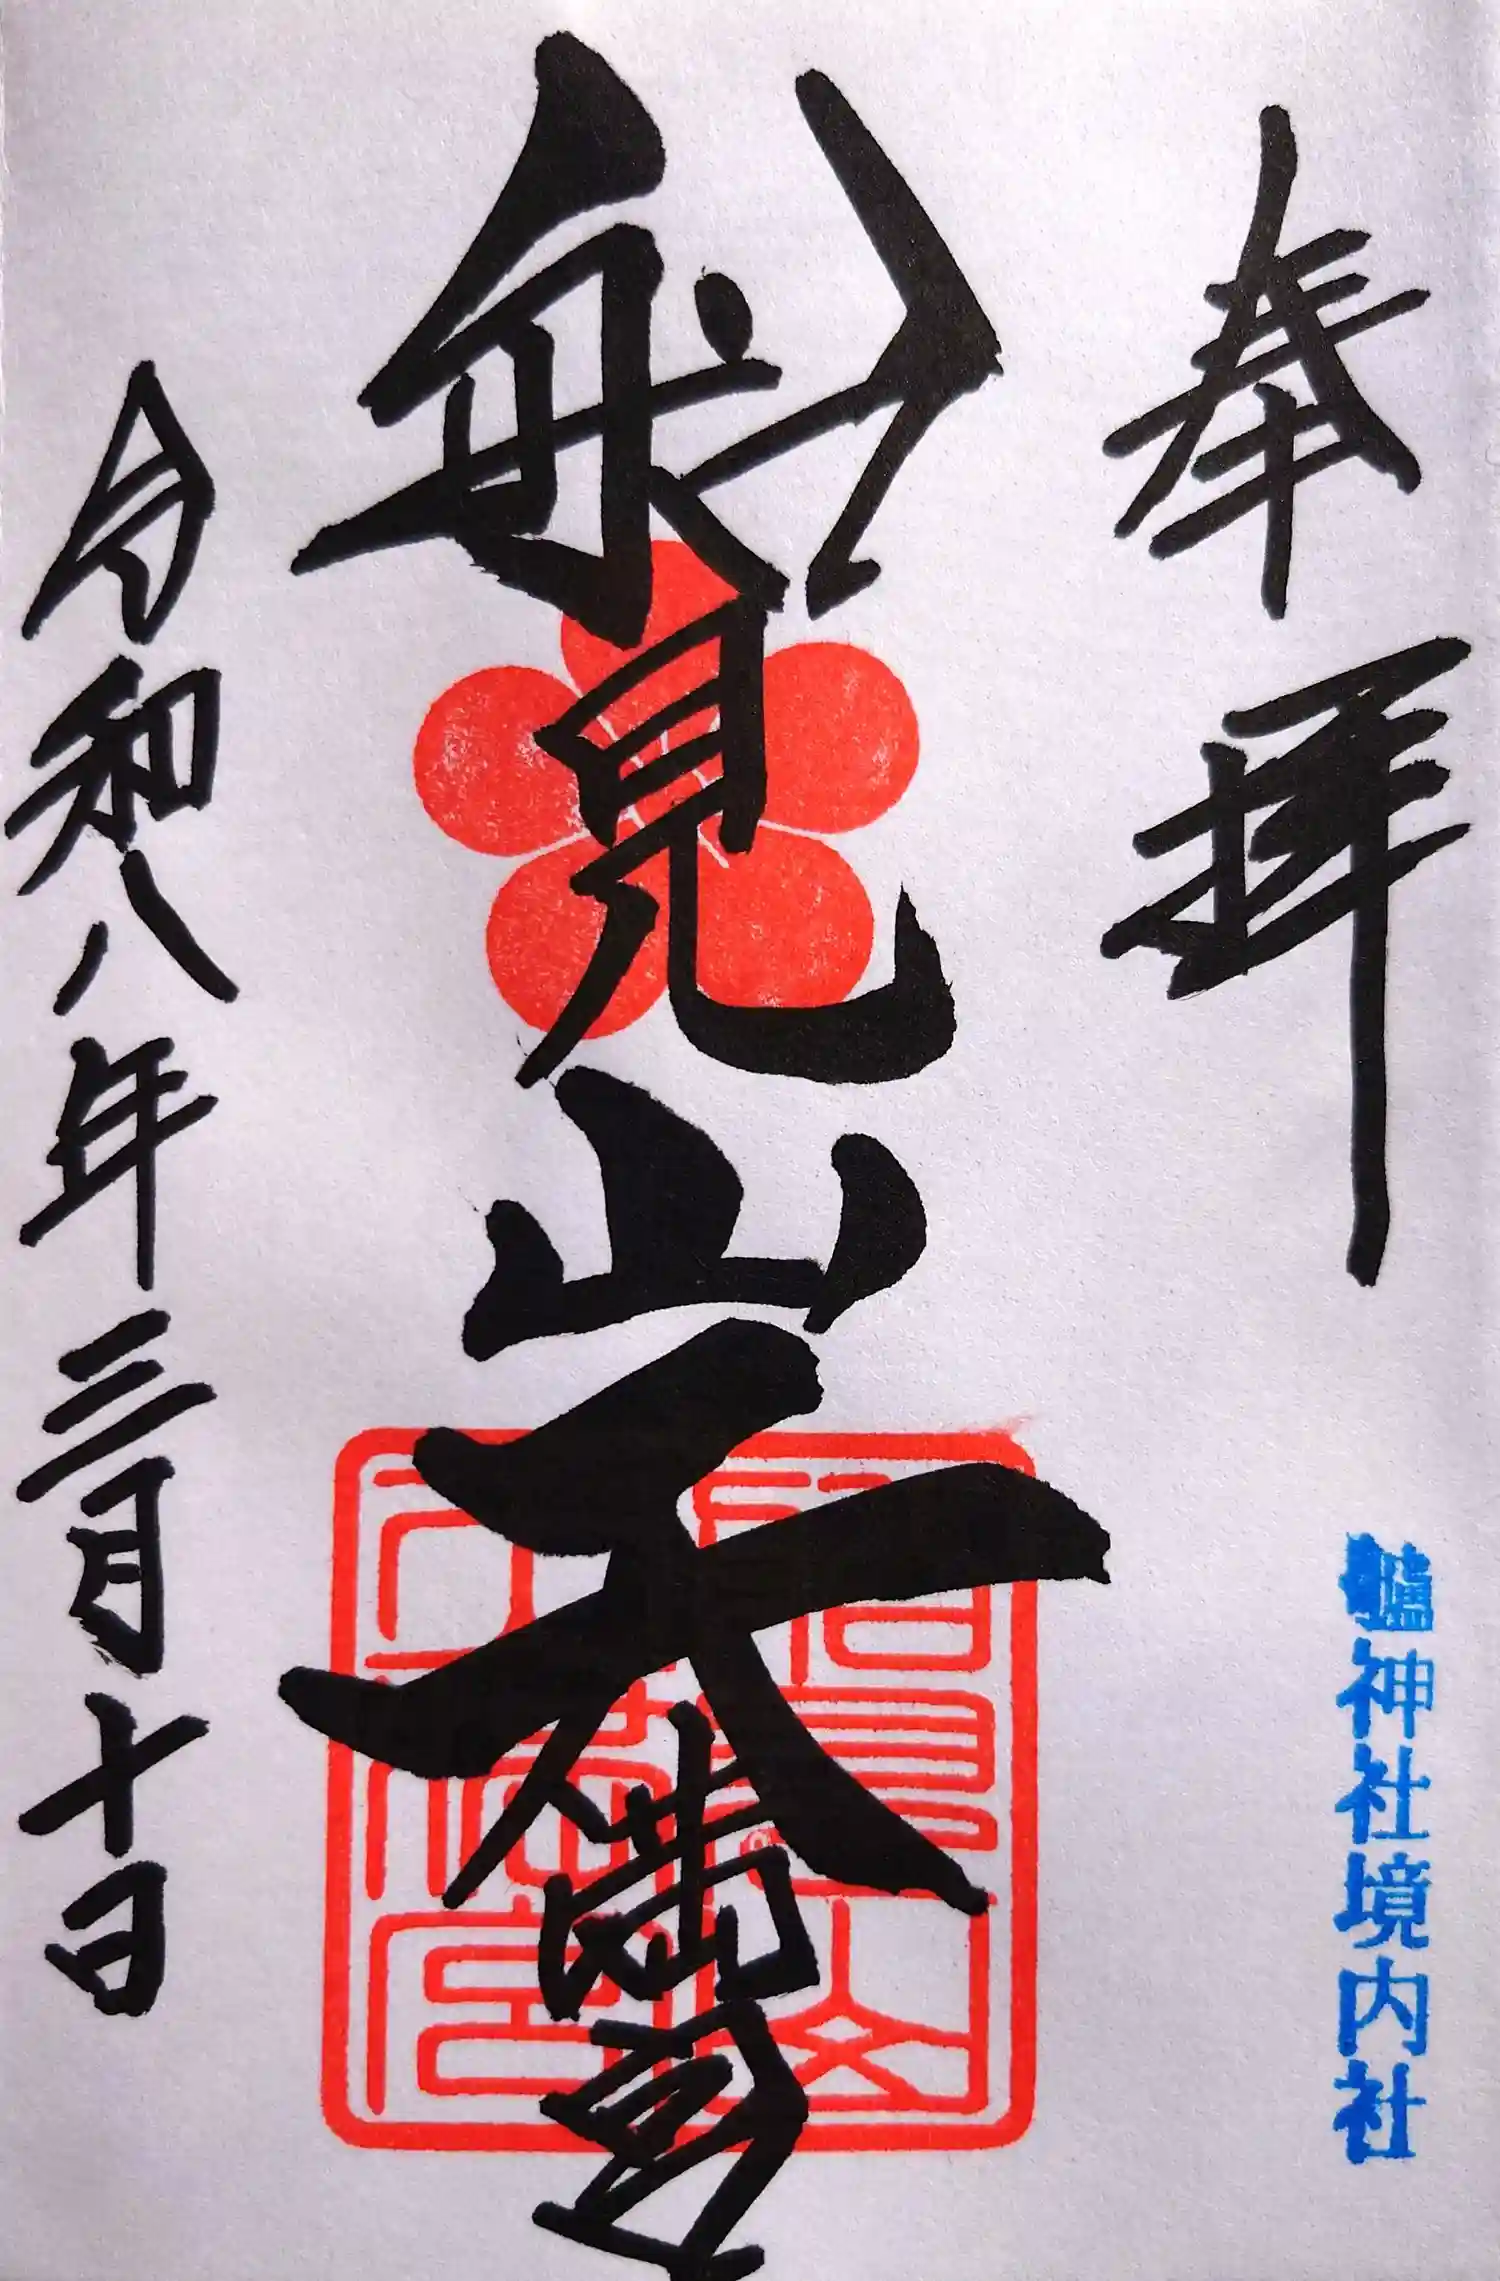 奉拝
艫神社境内社
船見山天満宮
令和八年三月十日